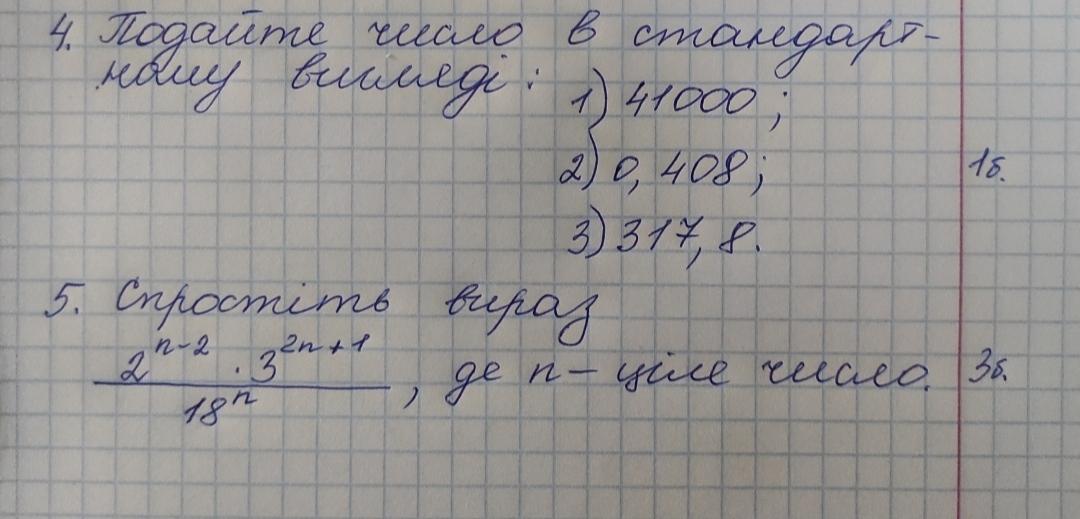 4. Подайте число в стандарт-
ному вигляді: 1) 41000;
2) 0,408; 1б.
3) 317,8.
5. Спростіть вираз
2^{n-2} · 3^{2n+1}
18^n , де n – ціле число. 3б.